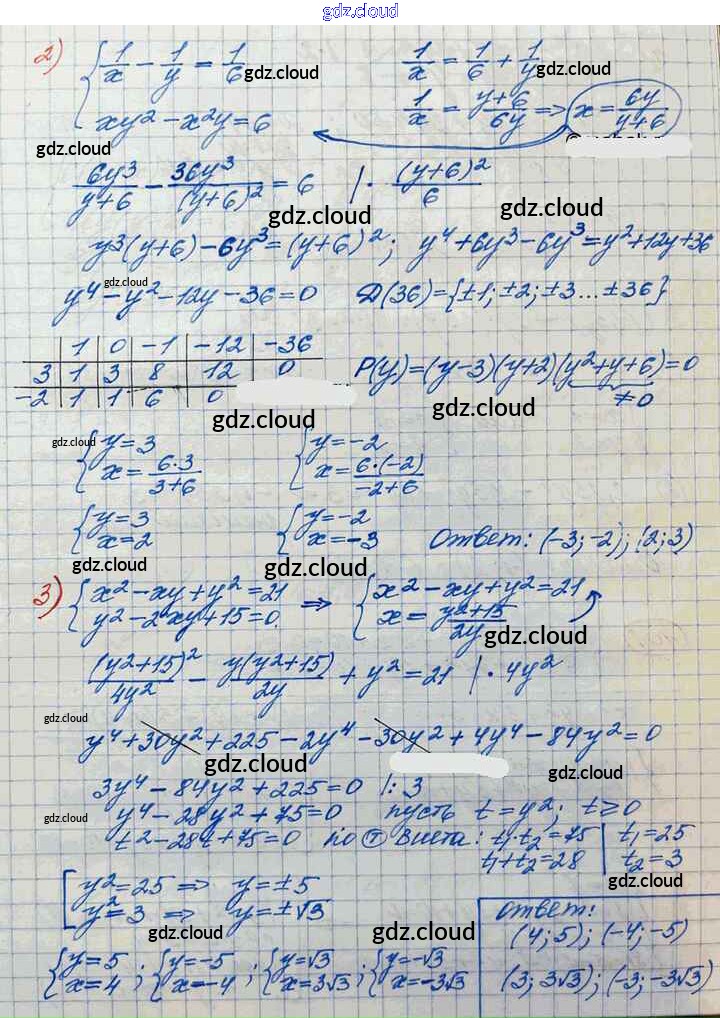 gdz.cloud
2) { 1/x - 1/y = 1/6 gdz.cloud
1/x = 1/6 + 1/y gdz.cloud
xy² - x²y = 6
1/x = (y+6)/6y => x = 6y/(y+6)
gdz.cloud
6y³/(y+6) - 36y³/(y+6)² = 6 | · (y+6)²/6
gdz.cloud gdz.cloud
y³(y+6) - 6y³ = (y+6)²; y⁴+6y³-6y³=y²+12y+36
gdz.cloud
y⁴ - y² - 12y - 36 = 0 D(36) = {±1; ±2; ±3 ... ±36}
| 1 | 0 | -1 | -12 | -36
3 | 1 | 3 | 8 | 12 | 0
P(y) = (y-3)(y+2)(y²+y+6) = 0
-2 | 1 | 1 | 6 | 0
≠0
gdz.cloud gdz.cloud
gdz.cloud
{ y=3 { y=-2
x = 6·3/(3+6) x = 6·(-2)/(-2+6)
{ y=3 { y=-2
x=2 x=-3 Ответ: (-3; -2); (2; 3)
gdz.cloud gdz.cloud gdz.cloud
3) { x² - xy + y² = 21 => { x² - xy + y² = 21
y² - 2xy + 15 = 0. x = (y²+15)/2y
gdz.cloud
(y²+15)²/4y² - y(y²+15)/2y + y² = 21 | · 4y²
gdz.cloud
y⁴ + 30y² + 225 - 2y⁴ - 30y² + 4y⁴ - 84y² = 0
gdz.cloud gdz.cloud
3y⁴ - 84y² + 225 = 0 |: 3
y⁴ - 28y² + 75 = 0 пусть t = y²; t ≥ 0
gdz.cloud
t² - 28t + 75 = 0 по Т Виета: t₁·t₂ = 75 | t₁ = 25
t₁+t₂ = 28 | t₂ = 3
gdz.cloud
[ y² = 25 => y = ±5
y² = 3 => y = ±√3
gdz.cloud gdz.cloud
Ответ:
(4; 5); (-4; -5)
{ y=5 ; { y=-5 ; { y=√3 ; { y=-√3
x=4 x=-4 x=3√3 x=-3√3
(3; 3√3); (-3; -3√3)
gdz.cloud gdz.cloud